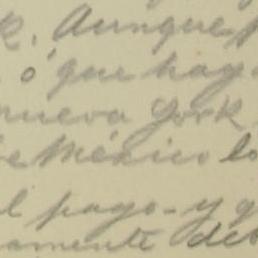 k. Aunque
ó que hay
nueva York
de México lo
el pago - y q
amente des